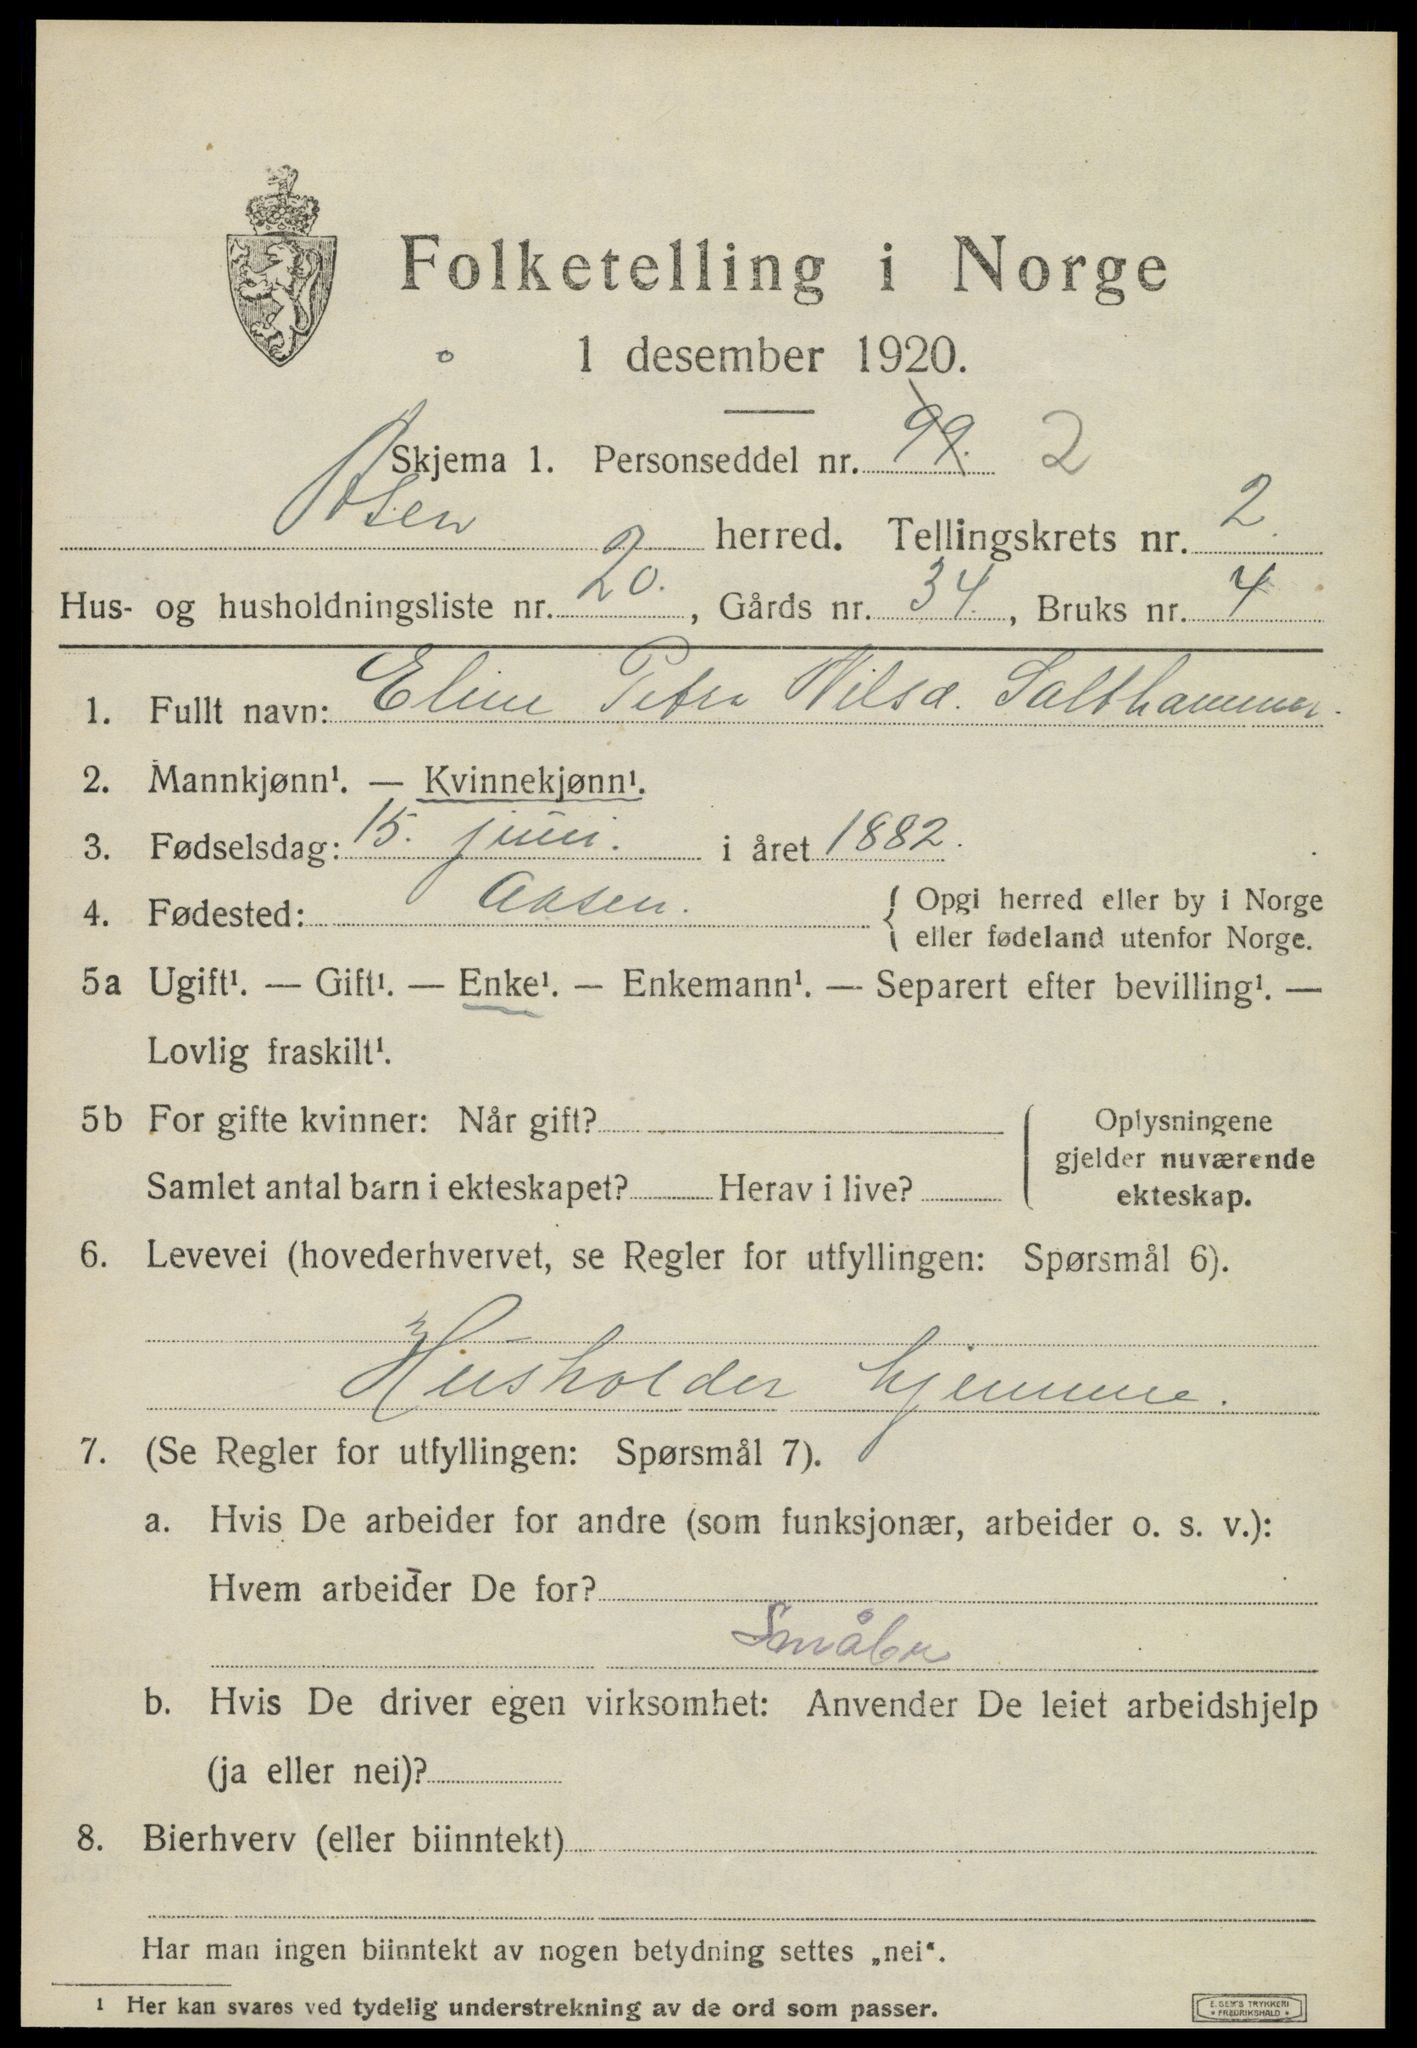 Folketelling i Norge
1 desember 1920.
Skjema 1. Personseddel nr. 99. 2
Åsen herred. Tellingskrets nr. 2.
Hus- og husholdningsliste nr. 20., Gårds nr. 34., Bruks nr. 4
1. Fullt navn: Eline Petra Nilsd. Salthammer.
2. Mannkjønn¹. — Kvinnekjønn¹.
3. Fødselsdag: 15. juni. i året 1882.
4. Fødested: Aasen. { Opgi herred eller by i Norge
eller fødeland utenfor Norge.
5a Ugift¹. — Gift¹. — Enke¹. — Enkemann¹. — Separert efter bevilling¹. —
Lovlig fraskilt¹.
5b For gifte kvinner: Når gift?
Samlet antal barn i ekteskapet? Herav i live?
Oplysningene
gjelder nuværende
ekteskap.
6. Levevei (hovederhvervet, se Regler for utfyllingen: Spørsmål 6).
Husholder hjemme.
7. (Se Regler for utfyllingen: Spørsmål 7).
a. Hvis De arbeider for andre (som funksjonær, arbeider o. s. v.):
Hvem arbeider De for?
Småbr
b. Hvis De driver egen virksomhet: Anvender De leiet arbeidshjelp
(ja eller nei)?
8. Bierhverv (eller biinntekt)
Har man ingen biinntekt av nogen betydning settes „nei“.
1 Her kan svares ved tydelig understrekning av de ord som passer.
E. SEM'S TRYKKERI
* FREDRIKSHALD *